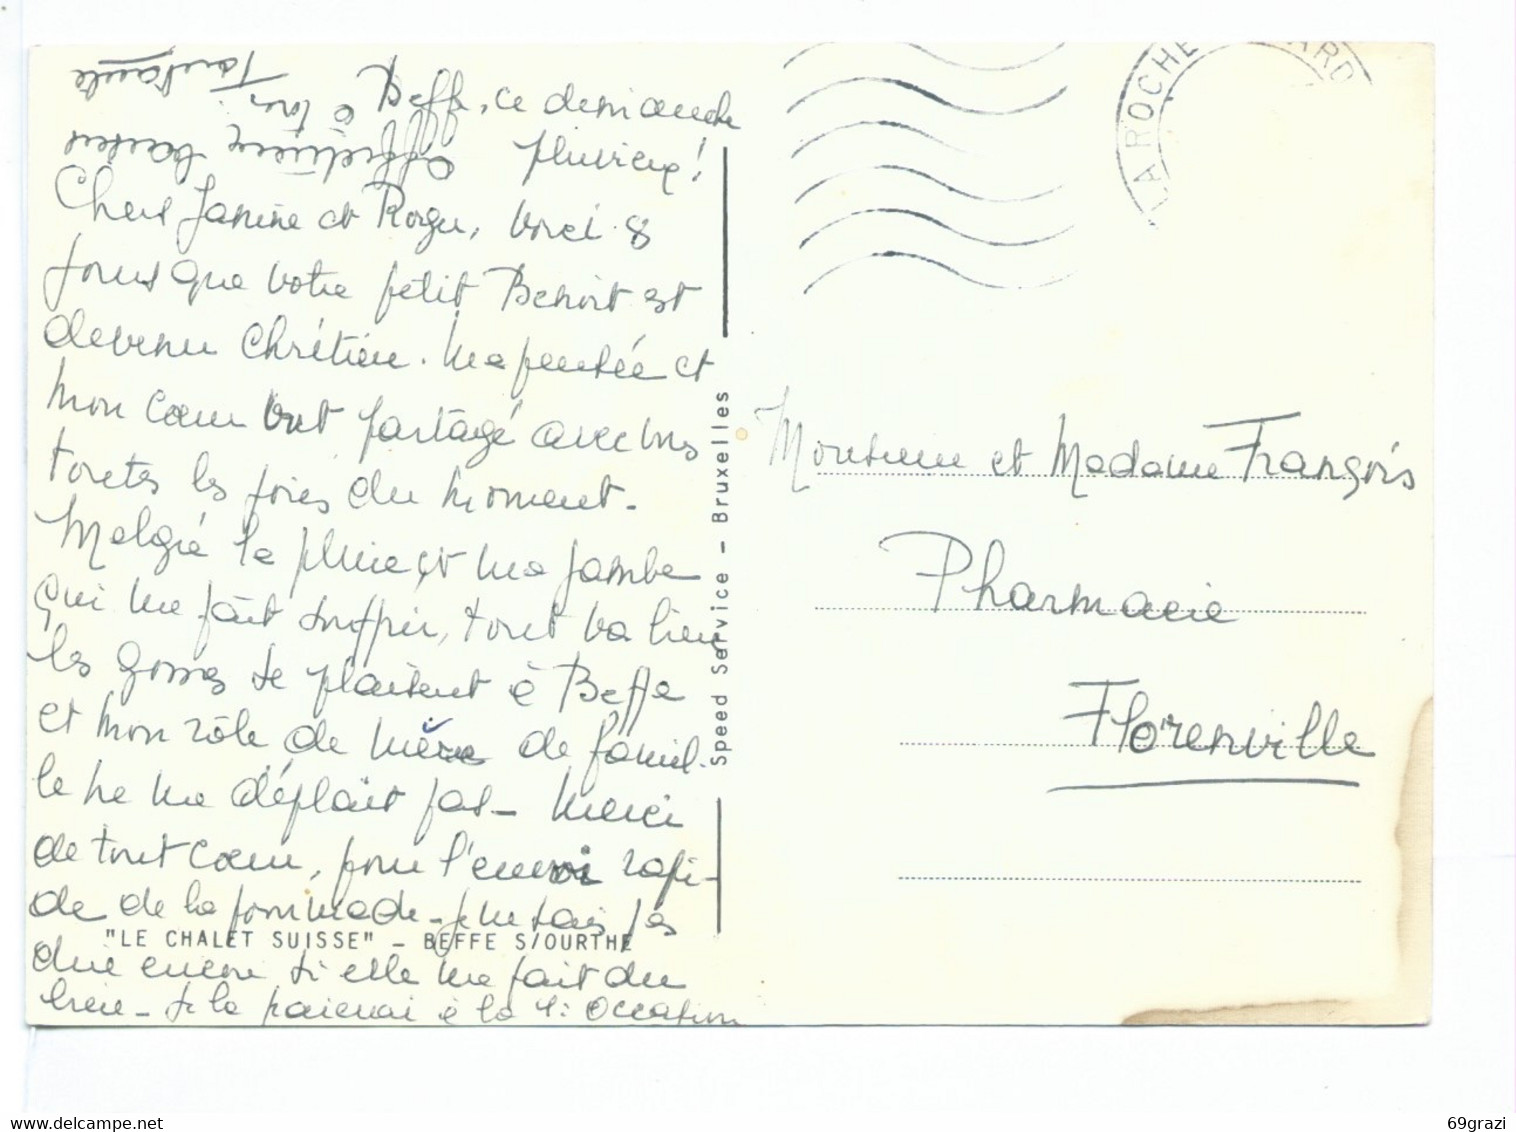 Beffe, ce dimanche
pluvieux!
Chers Janine et Roger, voici 8
jours que votre petit Benoit est
devenu chrétien. Ma pensée et
mon cœur ont partagé avec vous
toutes les joies du moment.
Malgré la pluie et ma jambe
qui me fait souffrir, tout va bien
les gosses se plaisent à Beffe
et mon rôle de mère de famil-
le ne me déplait pas - Merci
de tout cœur, pour l'envoi rapi-
de de la pommade - je ne sais pas
dire encore si elle me fait du
bien - Je la paierai à la 1e occasion
Affectueux baisers
à tous
"LE CHALET SUISSE" - BEFFE S/OURTHE
Speed Service - Bruxelles
LAROCHE ARD
Monsieur et Madame François
Pharmacie
Florenville
69grazi